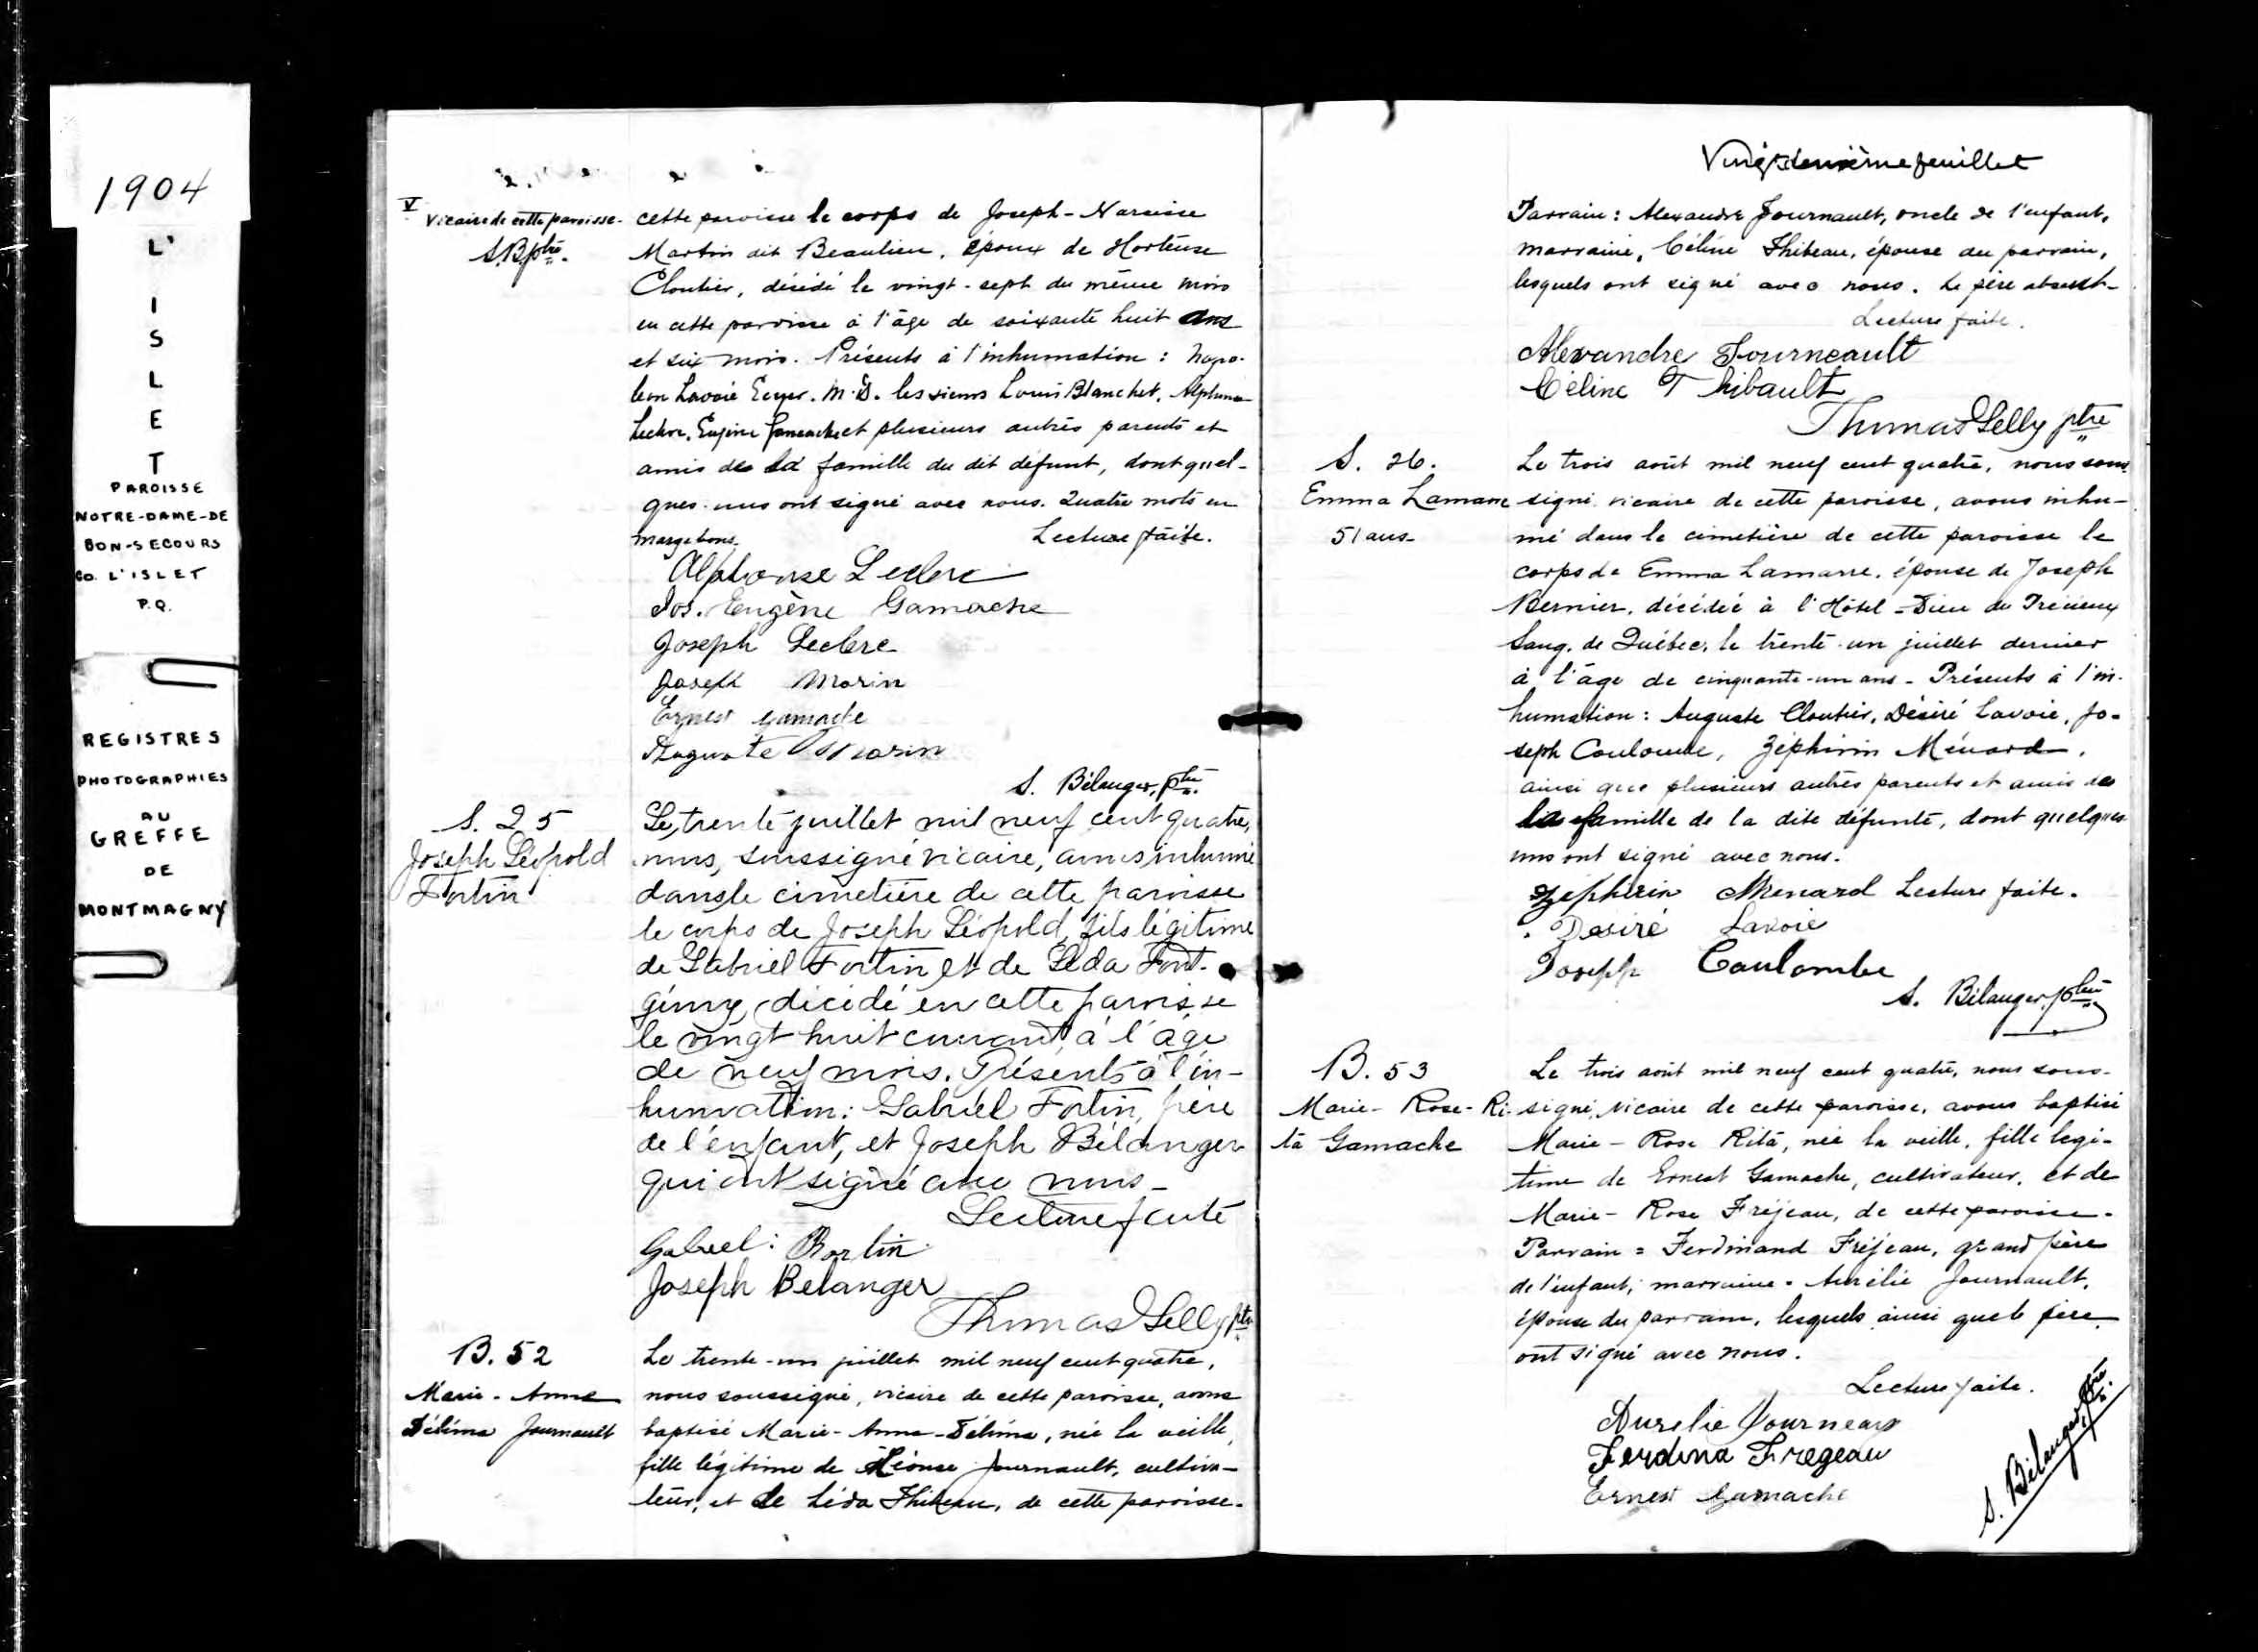 1904
L'
I
S
L
E
T
PAROISSE
NOTRE-DAME-DE
BON-SECOURS
CO. L'ISLET
P.Q.
REGISTRES
PHOTOGRAPHIES
AU
GREFFE
DE
MONTMAGNY
V vicaire de cette paroisse.
S.B. ptre.
cette paroisse le corps de Joseph-Narcisse
Martin dit Beaulieu, époux de Hortense
Cloutier, décédé le vingt-sept du même mois
en cette paroisse à l'âge de soixante huit ans
et six mois. Présents à l'inhumation : Napo-
leon Lavoie Ecuyer. M.D. les sieurs Louis Blanchet, Alphonse
Leclerc, Eugène Gamache et plusieurs autres parents et
amis de la famille du dit défunt, dont quel-
ques-uns ont signé avec nous. Quatre mots en
marge bons. Lecture faite.
Alphonse Leclerc
Jos. Eugène Gamache
Joseph Leclerc
Joseph Morin
Ernest Gamache
Auguste Morin
S. Bélanger, ptre.
S. 25
Joseph Léopold
Fortin
Le, trente juillet mil neuf cent quatre,
nous, soussigné vicaire, avons inhumé
dans le cimetière de cette paroisse
le corps de Joseph Léopold, fils légitime
de Gabriel Fortin et de Léda
décédé en cette paroisse
le vingt huit courant à l'âge
de neuf mois. Présents à l'in-
humation: Gabriel Fortin, père
de l'enfant, et Joseph Bélanger
qui ont signé avec nous_
Lecture faite
Gabriel Fortin
Joseph Belanger
Thomas Pelly ptre
B. 52
Marie-Anna
Délima Journault
Le trente-un juillet mil neuf cent quatre,
nous soussigné, vicaire de cette paroisse, avons
baptisé Marie-Anna-Délima, née la veille,
fille légitime de Léonce Journault, cultiva-
teur, et de Léda Thibeau, de cette paroisse.
Vingt deuxième feuillet
Parrain : Alexandre Journault, oncle de l'enfant,
marraine, Céline Thibeau, épouse du parrain,
lesquels ont signé avec nous. Le père absent-
Lecture faite.
Alexandre Fourneault
Céline Thibault
Thomas Pelly ptre
S. 26.
Emma Lamarre
51 ans-
Le trois août mil neuf cent quatre, nous sous-
signé vicaire de cette paroisse, avons inhu-
mé dans le cimetière de cette paroisse le
corps de Emma Lamarre, épouse de Joseph
Bernier, décédée à l'Hôtel-Dieu du Précieux
Sang, de Québec, le trente-un juillet dernier
à l'âge de cinquante-un ans - Présents à l'in-
humation : Auguste Cloutier, Désiré Lavoie, Jo-
seph Coulombe, Zéphirin Ménard,
ainsi que plusieurs autres parents et amis de
la famille de la dite défunte, dont quelques
uns ont signé avec nous.
Zéphirin Menard Lecture faite.
Desiré Lavoie
Joseph Coulombe
S. Bélanger, ptre
B. 53
Marie-Rose-Ri-
ta Gamache
Le trois août mil neuf cent quatre, nous sous-
signé, vicaire de cette paroisse, avons baptisé
Marie-Rose Rita, née la veille, fille légi-
time de Ernest Gamache, cultivateur, et de
Marie-Rose Fréjeau, de cette paroisse.
Parrain = Ferdinand Fréjeau, grand père
de l'enfant; marraine = Aurélie Journault,
épouse du parrain, lesquels ainsi que le père
ont signé avec nous.
Lecture faite.
Aurelie
Ferdina Fregeau
Ernest Gamache
S. Bélanger, ptre.